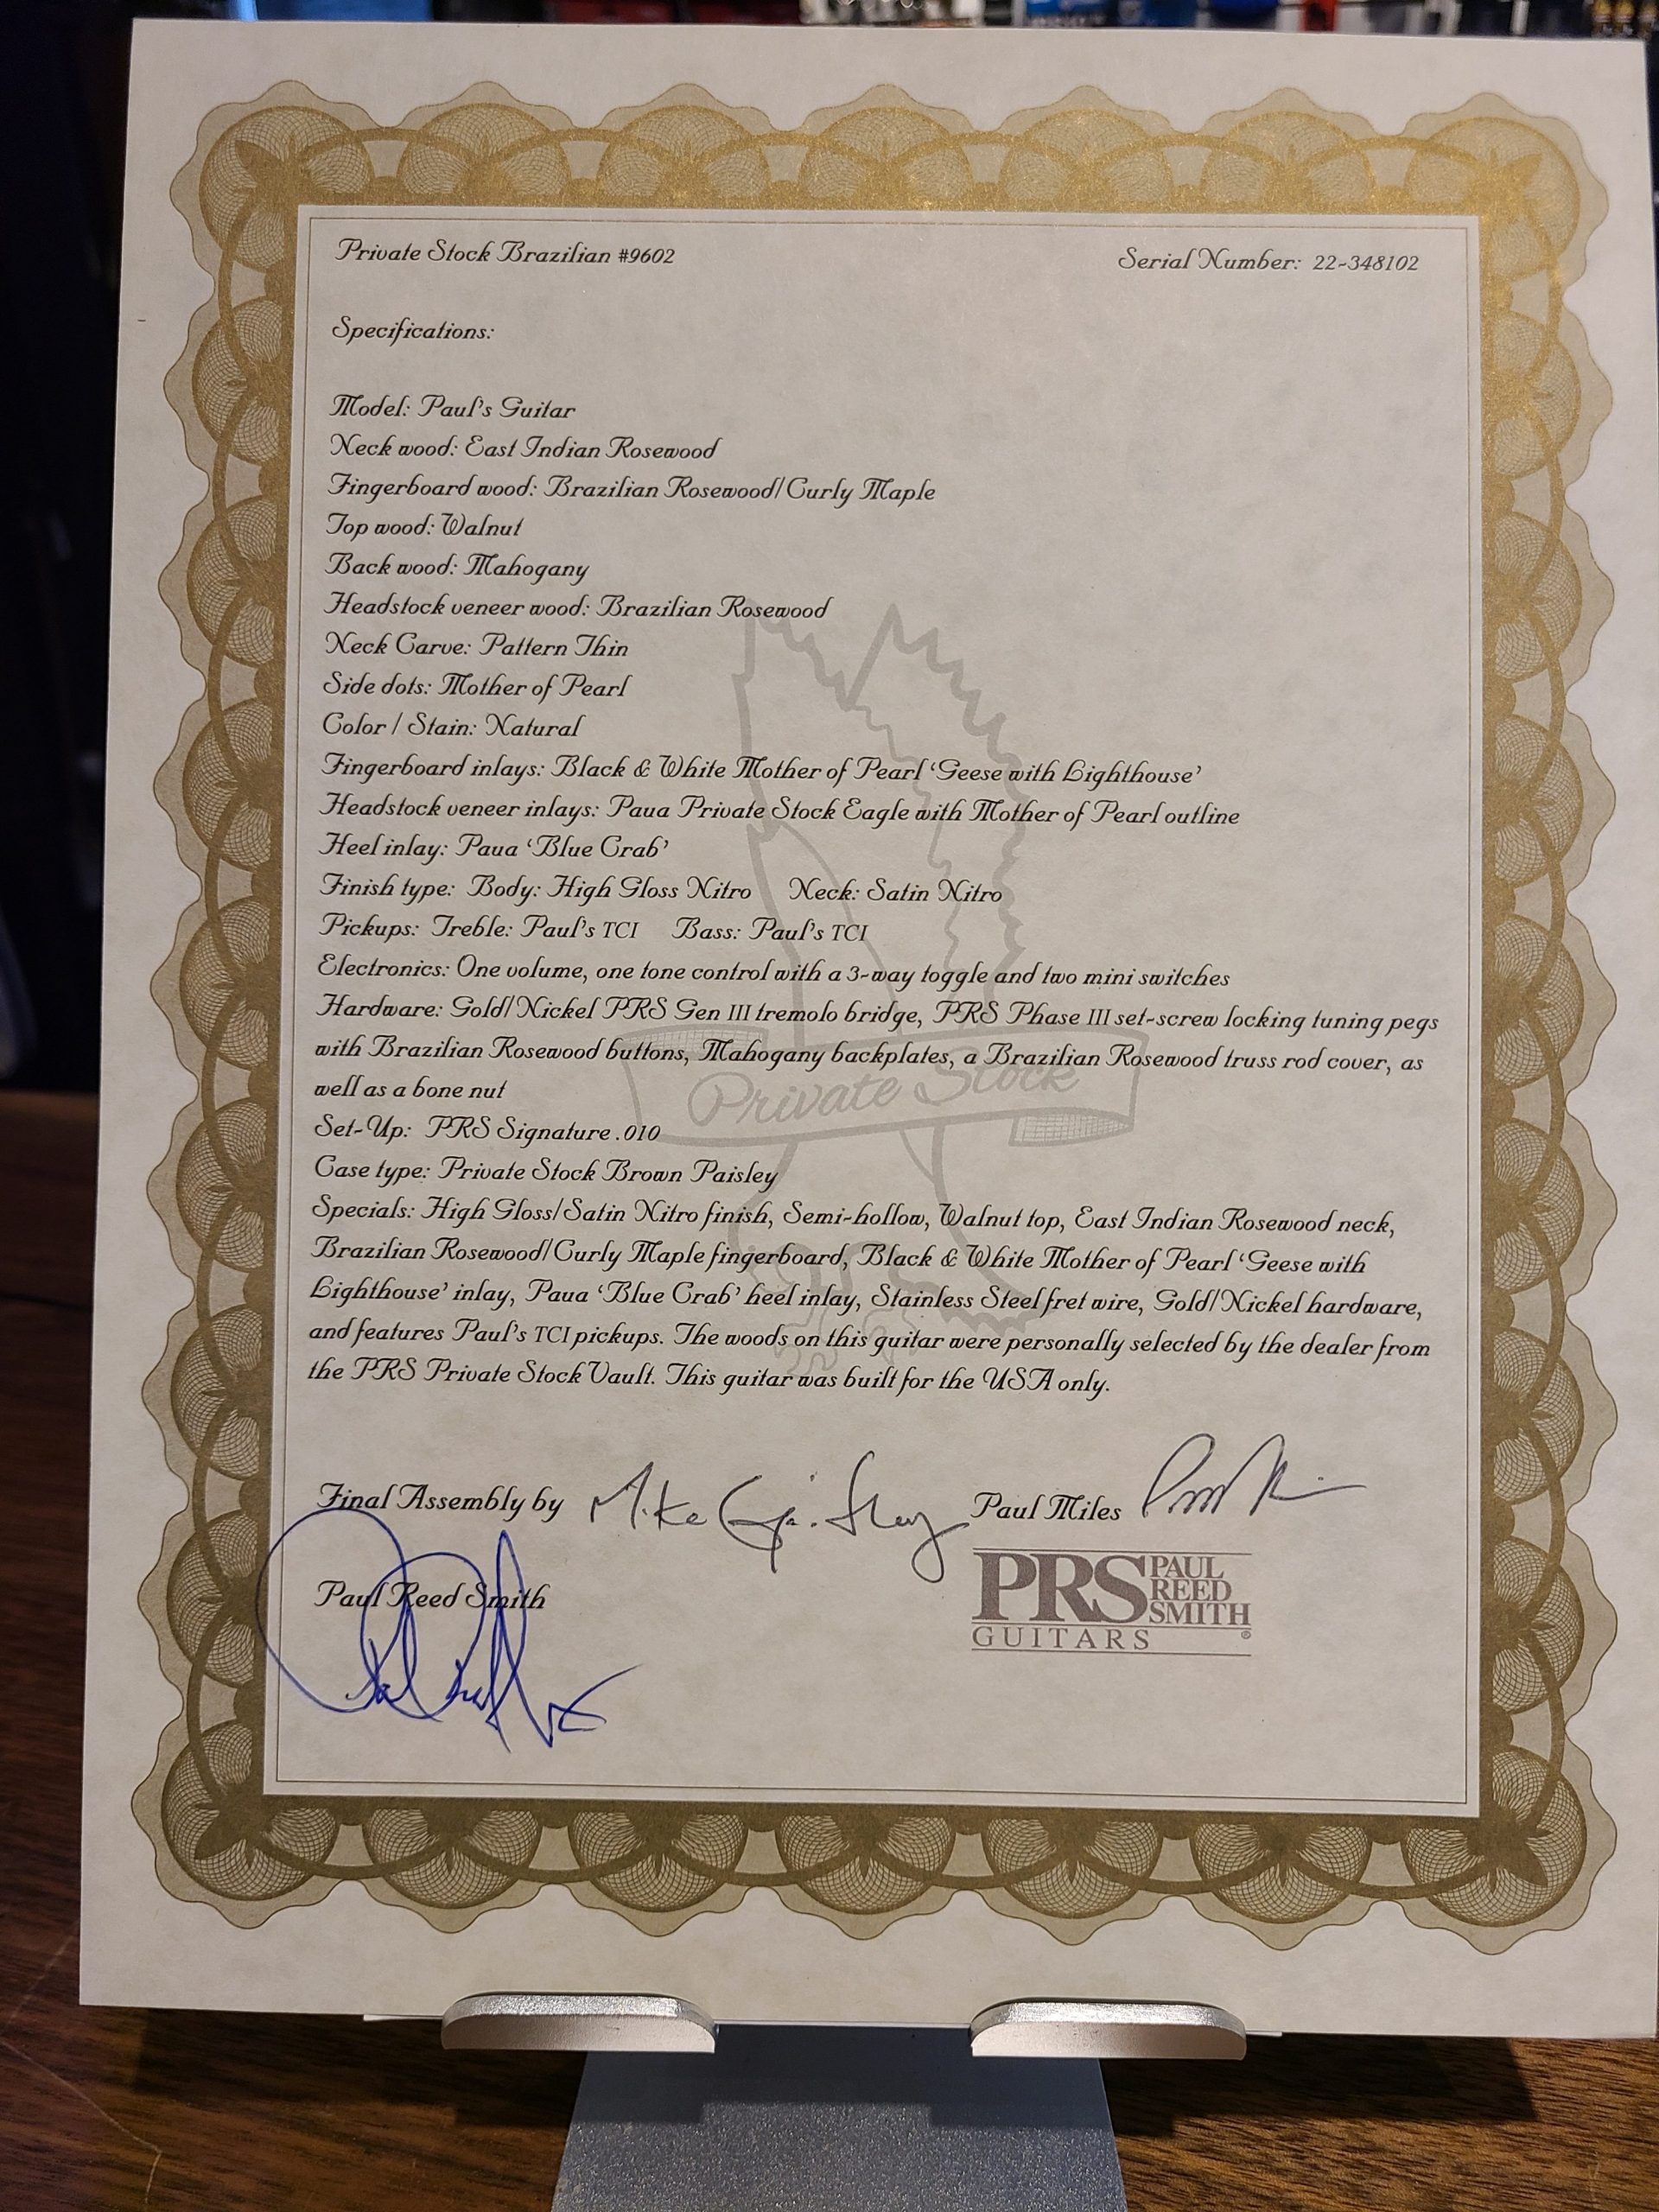 Private Stock Brazilian #9602 Serial Number: 22-348102
Specifications:
Model: Paul's Guitar
Neck wood: East Indian Rosewood
Fingerboard wood: Brazilian Rosewood/Curly Maple
Top wood: Walnut
Back wood: Mahogany
Headstock veneer wood: Brazilian Rosewood
Neck Carve: Pattern Thin
Side dots: Mother of Pearl
Color / Stain: Natural
Fingerboard inlays: Black & White Mother of Pearl ‘Geese with Lighthouse’
Headstock veneer inlays: Paua Private Stock Eagle with Mother of Pearl outline
Heel inlay: Paua ‘Blue Crab’
Finish type: Body: High Gloss Nitro Neck: Satin Nitro
Pickups: Treble: Paul's TCI Bass: Paul's TCI
Electronics: One volume, one tone control with a 3-way toggle and two mini switches
Hardware: Gold/Nickel PRS Gen III tremolo bridge, PRS Phase III set-screw locking tuning pegs
with Brazilian Rosewood buttons, Mahogany backplates, a Brazilian Rosewood truss rod cover, as
well as a bone nut
Private Stock
Set-Up: PRS Signature .010
Case type: Private Stock Brown Paisley
Specials: High Gloss/Satin Nitro finish, Semi-hollow, Walnut top, East Indian Rosewood neck,
Brazilian Rosewood/Curly Maple fingerboard, Black & White Mother of Pearl ‘Geese with
Lighthouse’ inlay, Paua ‘Blue Crab’ heel inlay, Stainless Steel fret wire, Gold/Nickel hardware,
and features Paul's TCI pickups. The woods on this guitar were personally selected by the dealer from
the PRS Private Stock Vault. This guitar was built for the USA only.
Final Assembly by Mike Paul Miles
Paul Reed Smith
PRS PAUL
REED
SMITH
GUITARS ®